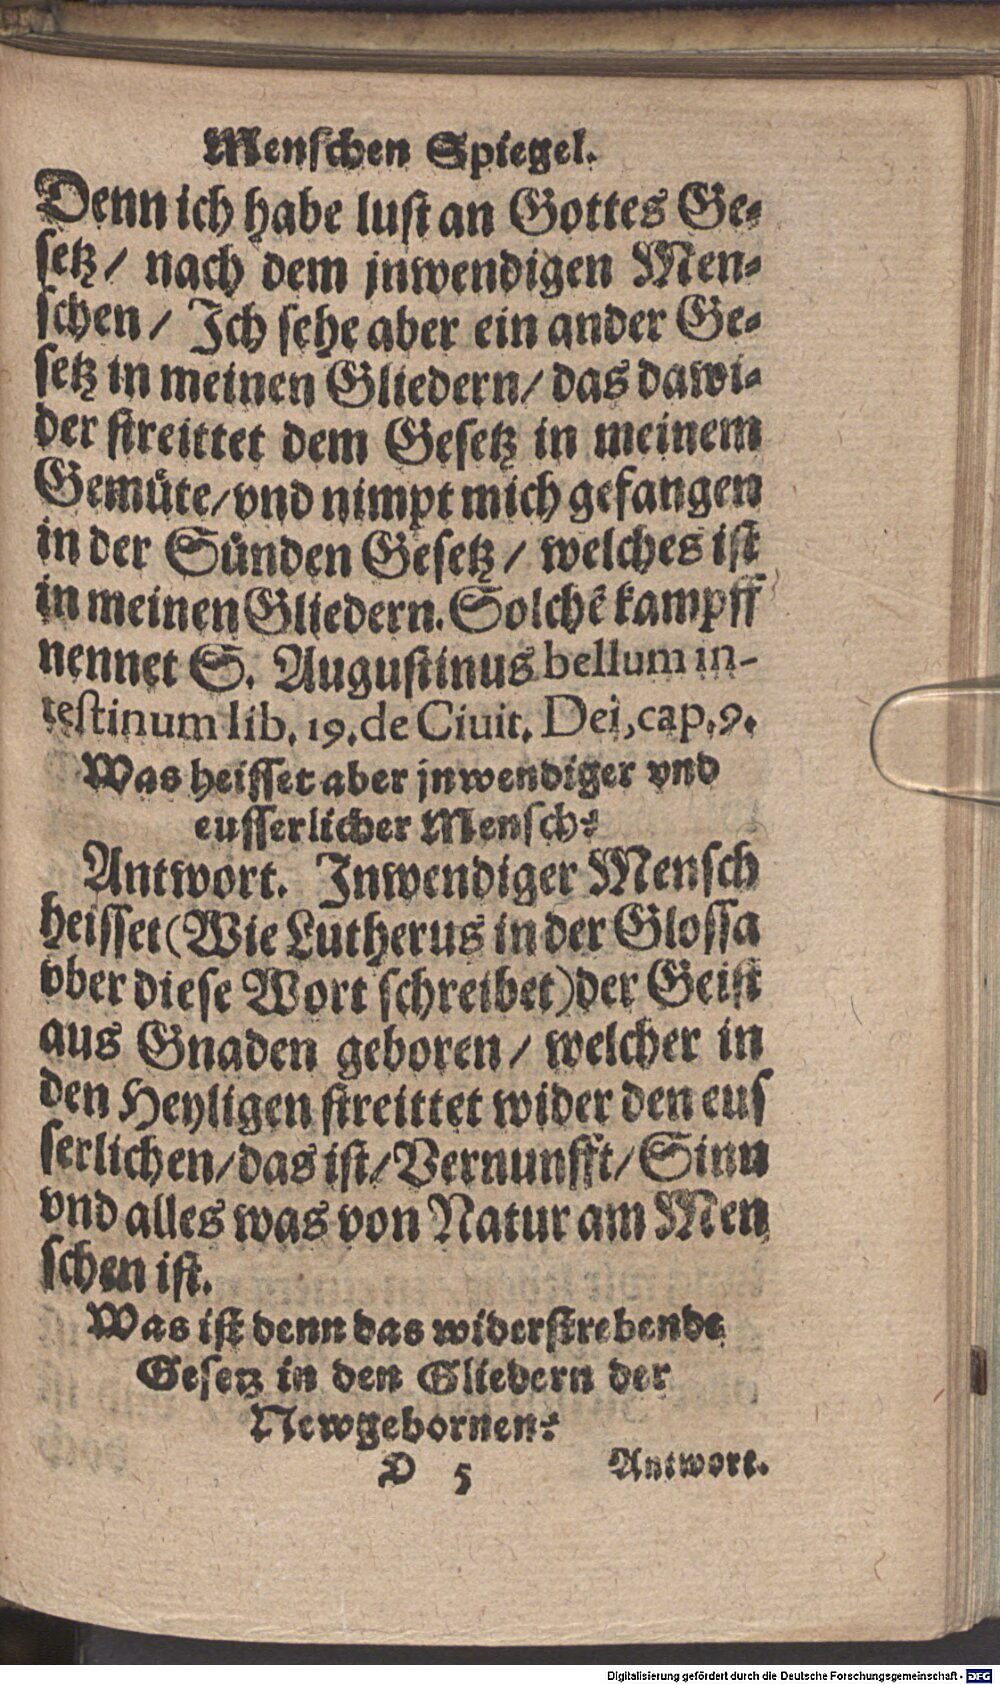 Menschen Spiegel.
Denn ich habe lust an Gottes Ge⸗
setz / nach dem jnwendigen Men⸗
schen / Ich sehe aber ein ander Ge⸗
setz in meinen Gliedern / das dawi⸗
der streittet dem Gesetz in meinem
Gemüte / vnd nimpt mich gefangen
in der Sünden Gesetz / welches ist
in meinen Gliedern. Solchē kampff
nennet S. Augustinus bellum in-
testinum lib. 19. de Ciuit. Dei, cap. 9.
Was heisset aber jnwendiger vnd
eusserlicher Mensch?
Antwort. Inwendiger Mensch
heisset (Wie Lutherus in der Glossa
vber diese Wort schreibet) der Geist
aus Gnaden geboren / welcher in
den Heyligen streittet wider den eus
serlichen / das ist / Vernunfft / Sinn
vnd alles was von Natur am Men
schen ist.
Was ist denn das widerstrebende
Gesetz in den Gliedern der
Newgebornen?
D 5 Antwort.
Digitalisierung gefördert durch die Deutsche Forschungsgemeinschaft - DFG